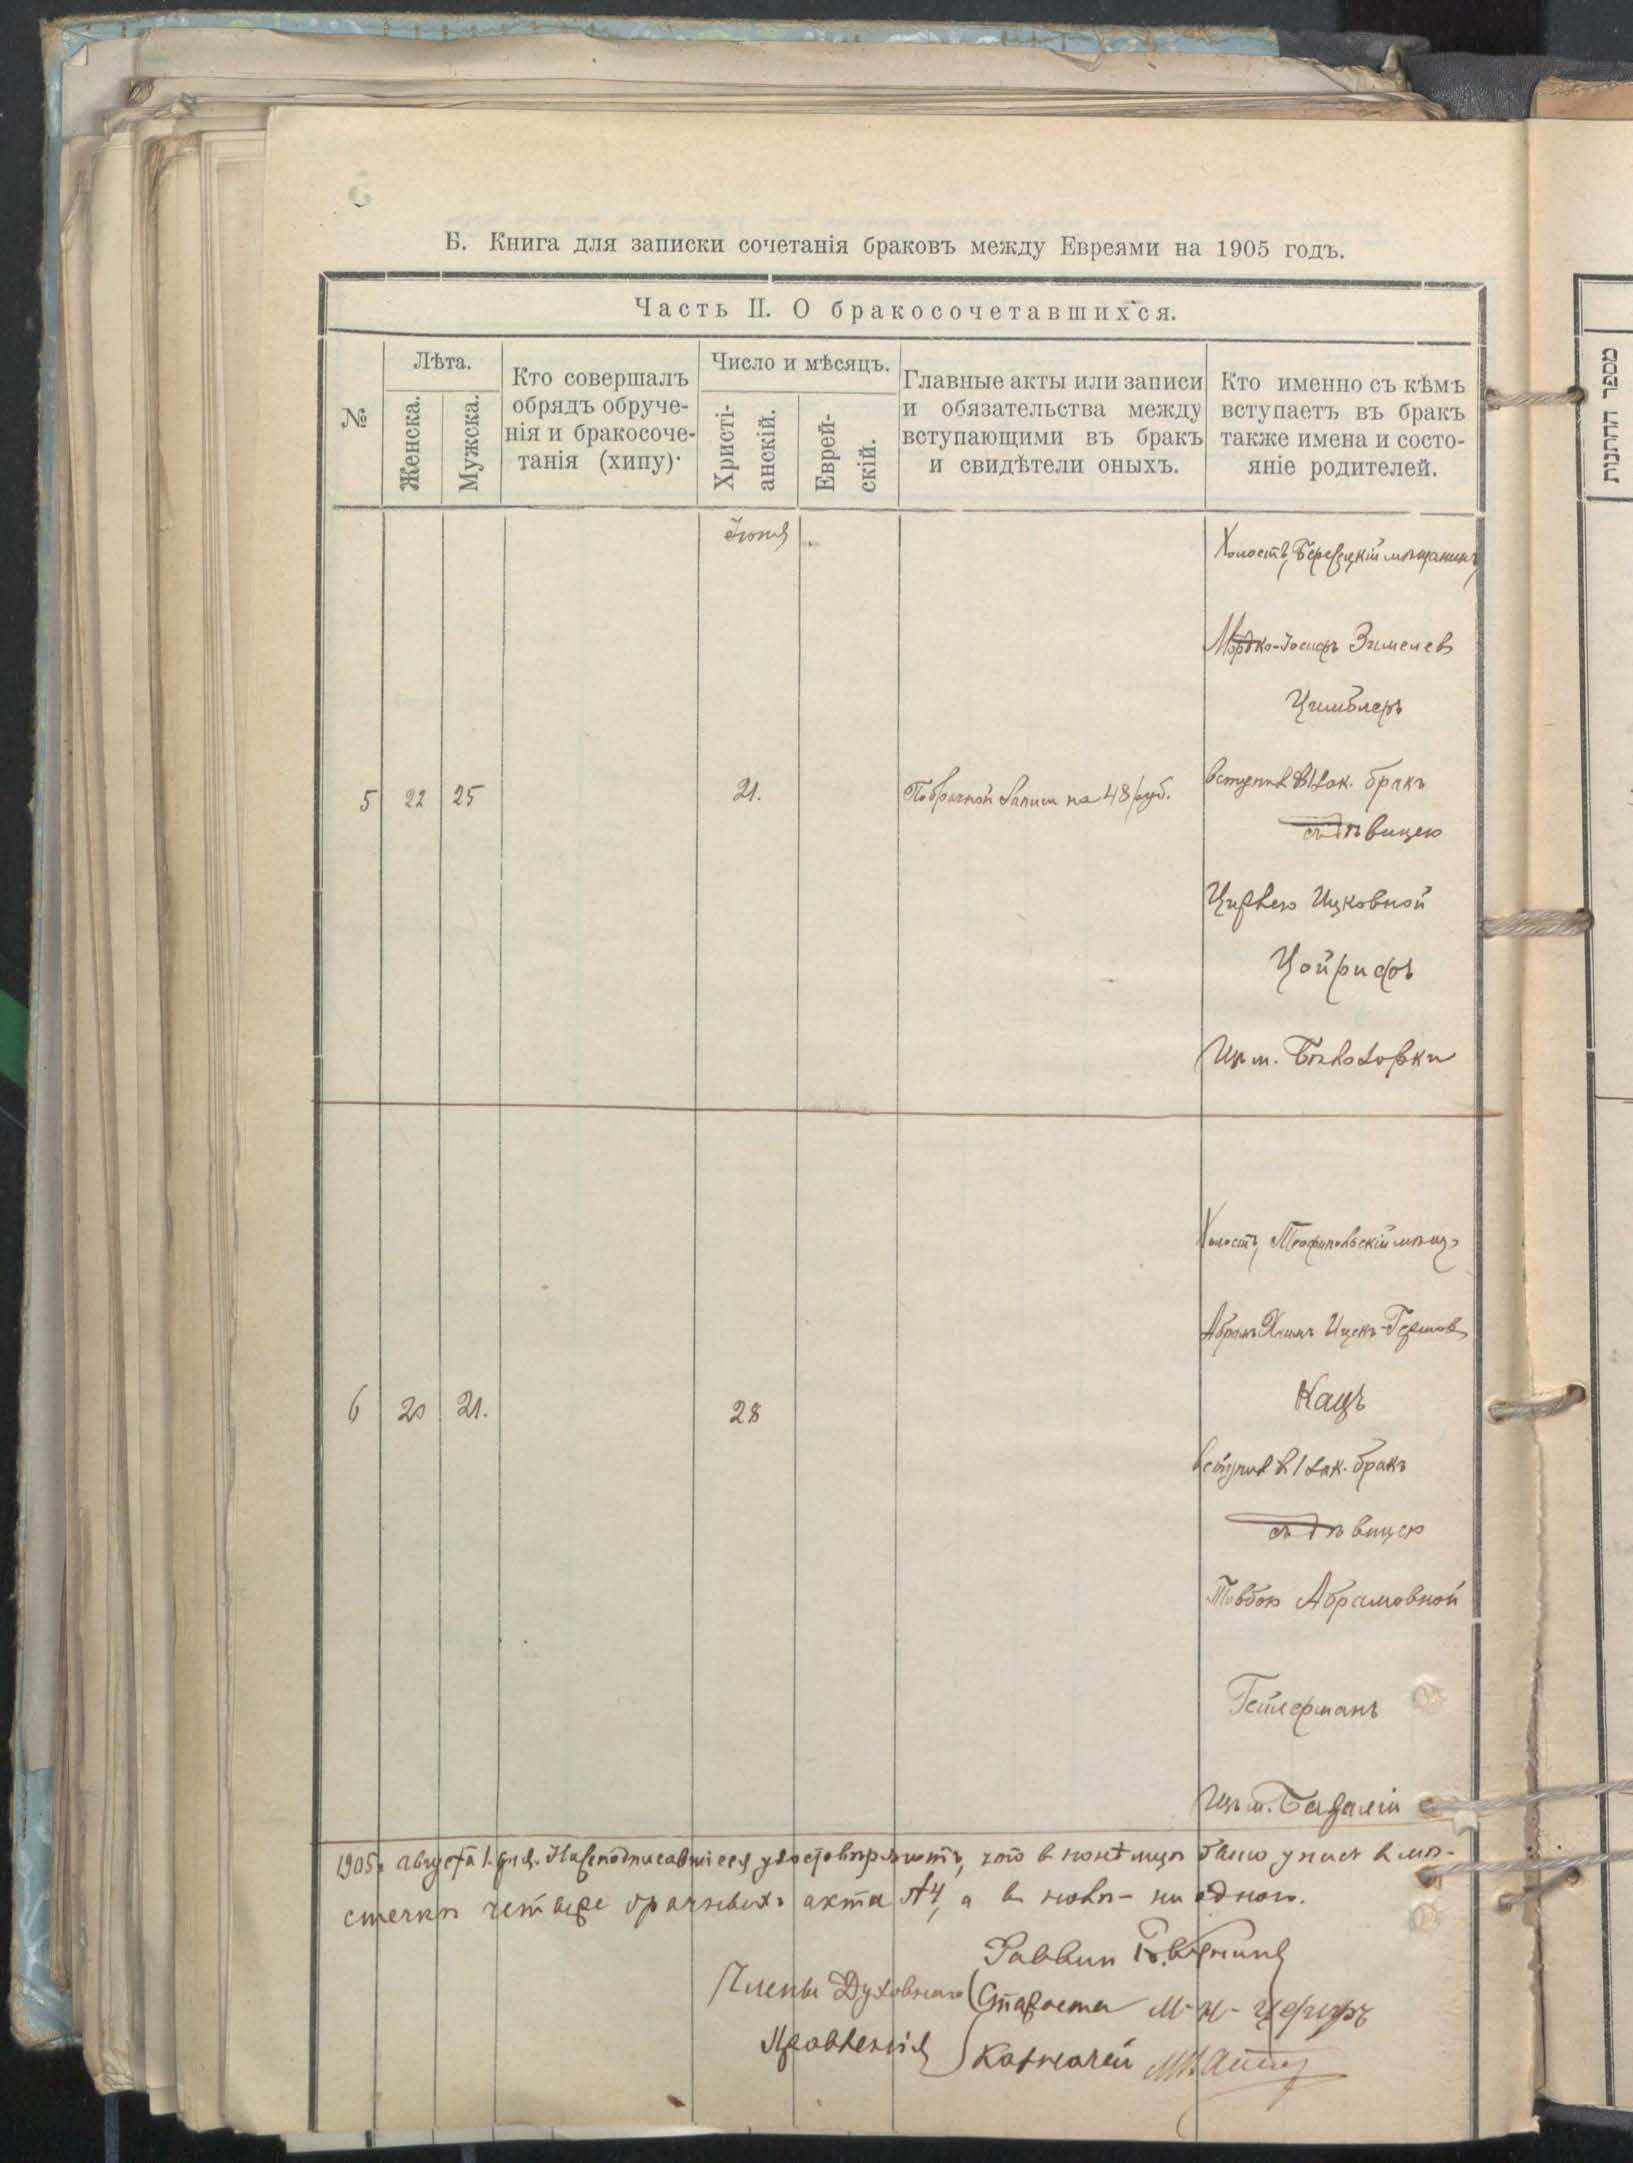 Б. Книга для записки сочетанія браковъ между Евреями на 1905 годъ.
Часть II. О бракосочетавшихся.
№
Лѣта.
Женска.
Мужска.
Кто совершалъ
обрядъ обруче-
нія и бракосоче-
танія (хипу).
Число и мѣсяцъ.
Христі-
анскій.
Еврей-
скій.
Главные акты или записи
и обязательства между
вступающими въ бракъ
и свидѣтели оныхъ.
Кто именно съ кѣмъ
вступаетъ въ бракъ
также имена и состо-
яніе родителей.
Іюня
Холостъ, мѣщанинъ
Мордко-Іосифъ Зимелев
Цимблеръ
5 22 25 21. на 48 руб. вступив в 1 зак. бракъ
съ дѣвицею
Ицковной
Цойрифъ
Из м.
Холостъ, Теофипольскій мѣщ.
Абрамъ Хаимъ Ицекъ-Гершов
Кацъ
6 20 21. 28
вступив в 1 зак. бракъ
съ дѣвицею
Товбою Абрамовной
Гейлерманъ
Изъ м. Базаліи
1905 г. августа 1 дня. Нижеподписавшіеся удостовѣряютъ, что в было у насъ в мѣ-
стечкѣ четыре брачныхъ акта № 4, а в - ни одного.
Раввин
Члены Духовнаго Староста
Правленія Казначей
מספר החתנות